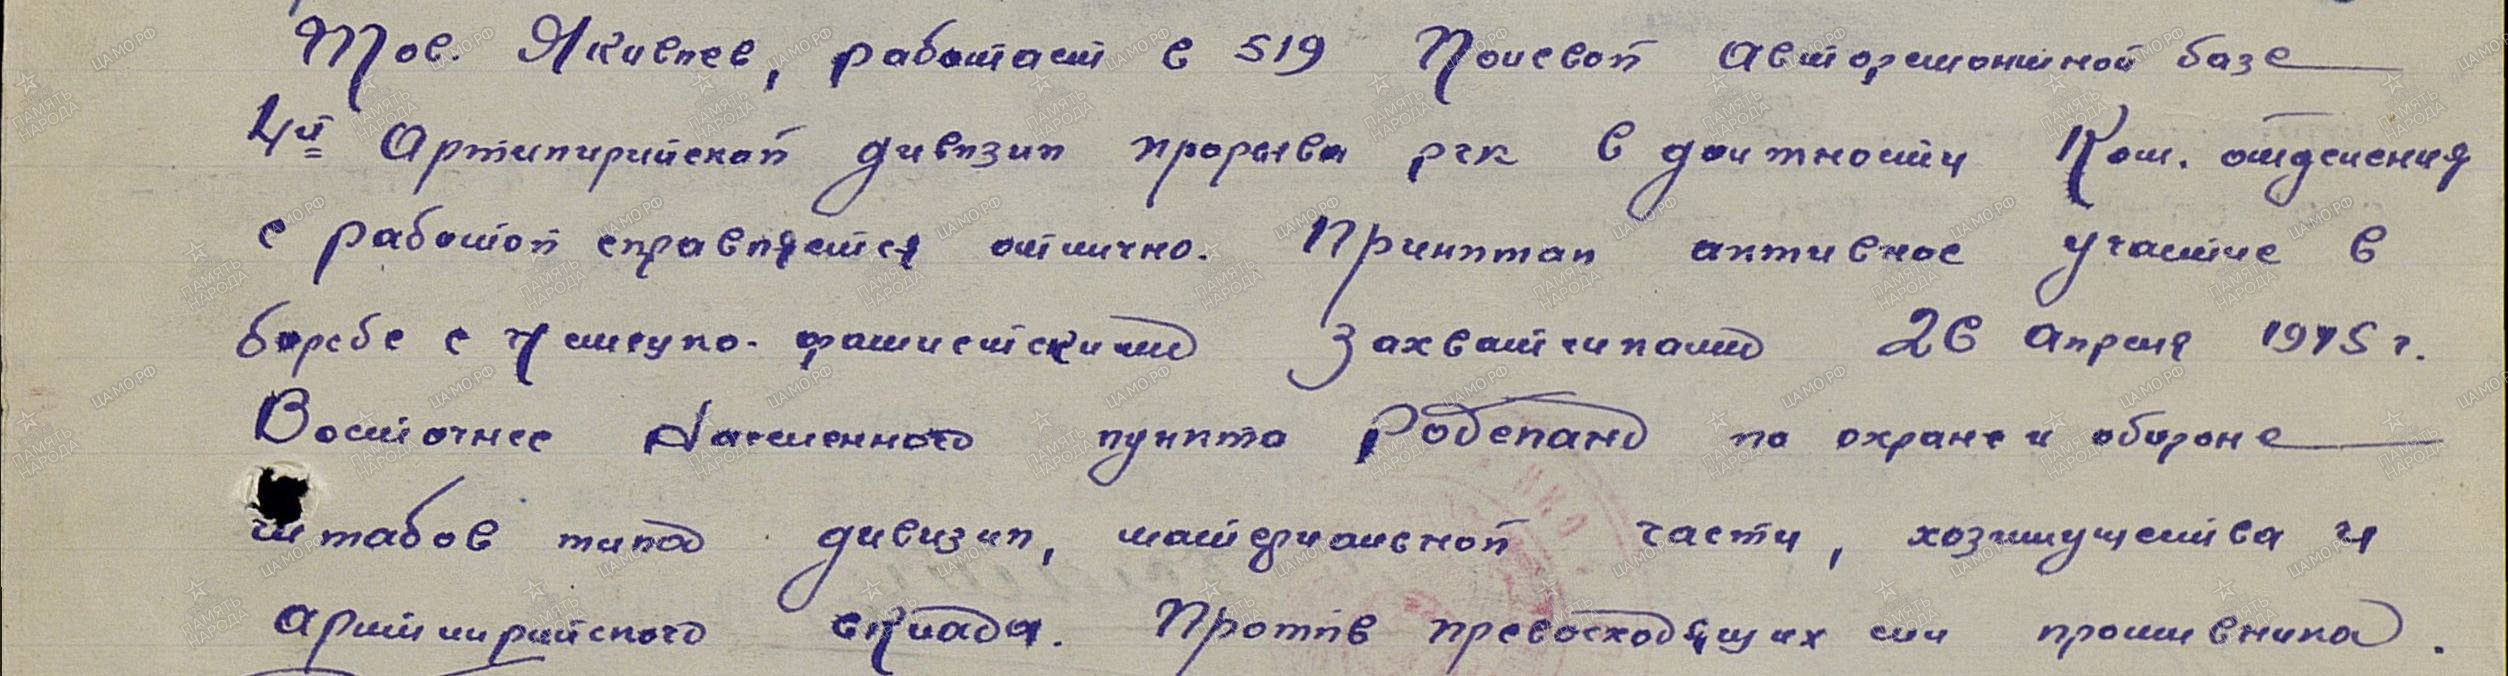 Тов. Яковлев, работает в 519 Полевой Авторемонтной базе
4й Артилирийской дивизии прорыва ргк в должности Ком. отделения
с работой справляется отлично. Принимал активное участие в
борьбе с Немецко-фашистскими захватчиками 26 апреля 1945 г.
Восточнее Населенного пункта Робеланд по охране и обороне
штабов тыла дивизии, материальной части, хозимущества и
артилирийского склада. Против превосходящих сил противника.